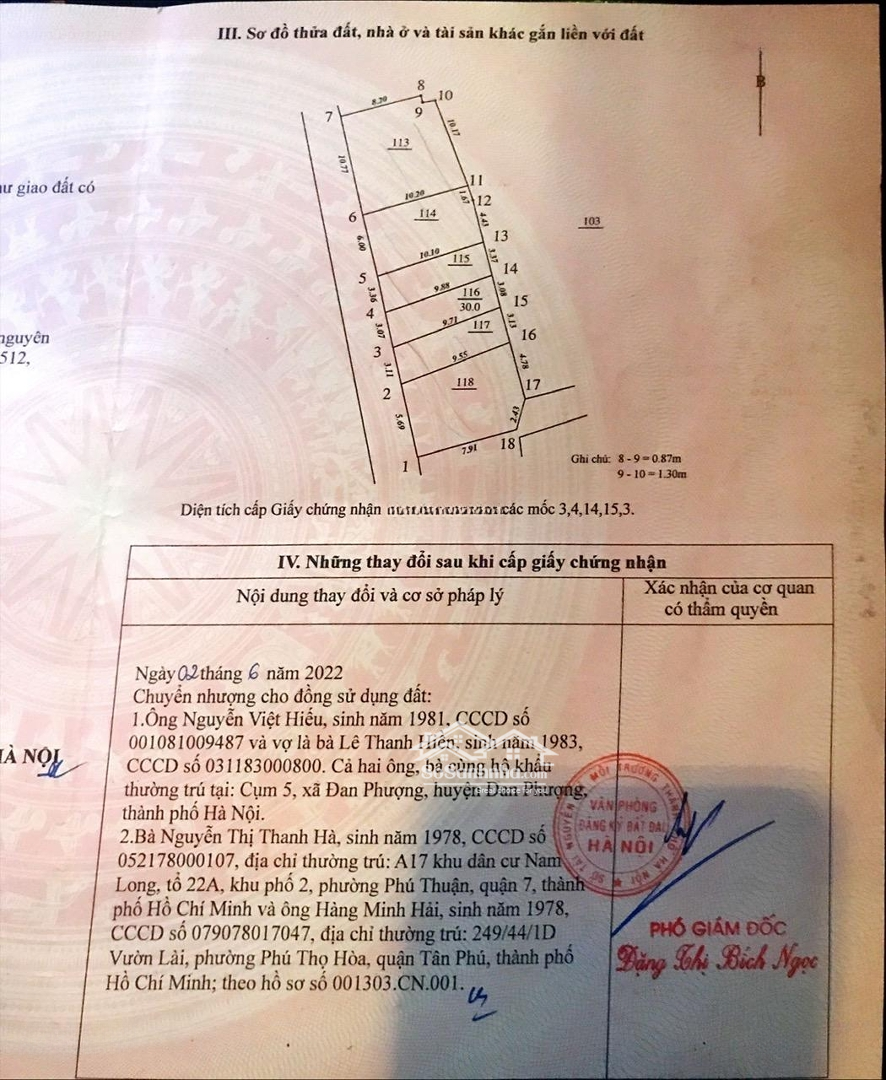 III. Sơ đồ thửa đất, nhà ở và tài sản khác gắn liền với đất
8
10
8.20
7
9
B
113
10.17
10.77
ư giao đất có
11
10.20
1.67
12
6
114
4.43
103
13
6.00
10.10
115
3.37
14
5
9.88
116
3.08
3.36
30.0
15
4
9.71
117
3.13
3.07
16
3
9.55
nguyên
512,
3.11
118
4.78
17
2
2.43
5.69
18
7.91
1
Ghi chú: 8 - 9 = 0.87m
9 - 10 = 1.30m
Diện tích cấp Giấy chứng nhận các mốc 3,4,14,15,3.
IV. Những thay đổi sau khi cấp giấy chứng nhận
Nội dung thay đổi và cơ sở pháp lý
Xác nhận của cơ quan
có thẩm quyền
Ngày 02 tháng 6 năm 2022
Chuyển nhượng cho đồng sử dụng đất:
1.Ông Nguyễn Việt Hiếu, sinh năm 1981, CCCD số
001081009487 và vợ là bà Lê Thanh Hiền, sinh năm 1983,
CCCD số 031183000800. Cả hai ông, bà cùng hộ khẩu
thường trú tại: Cụm 5, xã Đan Phượng, huyện Đan Phượng,
thành phố Hà Nội.
2.Bà Nguyễn Thị Thanh Hà, sinh năm 1978, CCCD số
052178000107, địa chỉ thường trú: A17 khu dân cư Nam
Long, tổ 22A, khu phố 2, phường Phú Thuận, quận 7, thành
phố Hồ Chí Minh và ông Hàng Minh Hải, sinh năm 1978,
CCCD số 079078017047, địa chỉ thường trú: 249/44/1D
Vườn Lài, phường Phú Thọ Hòa, quận Tân Phú, thành phố
Hồ Chí Minh; theo hồ sơ số 001303.CN.001.
HÀ NỘI
VĂN PHÒNG
ĐĂNG KÝ ĐẤT ĐAI
HÀ NỘI
PHÓ GIÁM ĐỐC
Đặng Thị Bích Ngọc